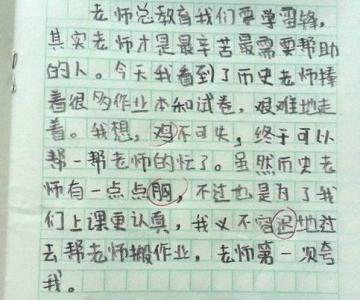 老师总教育我们要学雷锋,
其实老师才是最辛苦最需要帮助
的人。今天我看到了历史老师捧
着很多作业本和试卷,艰难地走
着。我想,鸡不可失,终于可以
帮一帮老师的忙了。虽然历史老
师有一点点胭,不过也是为了我
们上课更认真,我义不容迟地过
去帮老师搬作业,老师第一次夸
我。